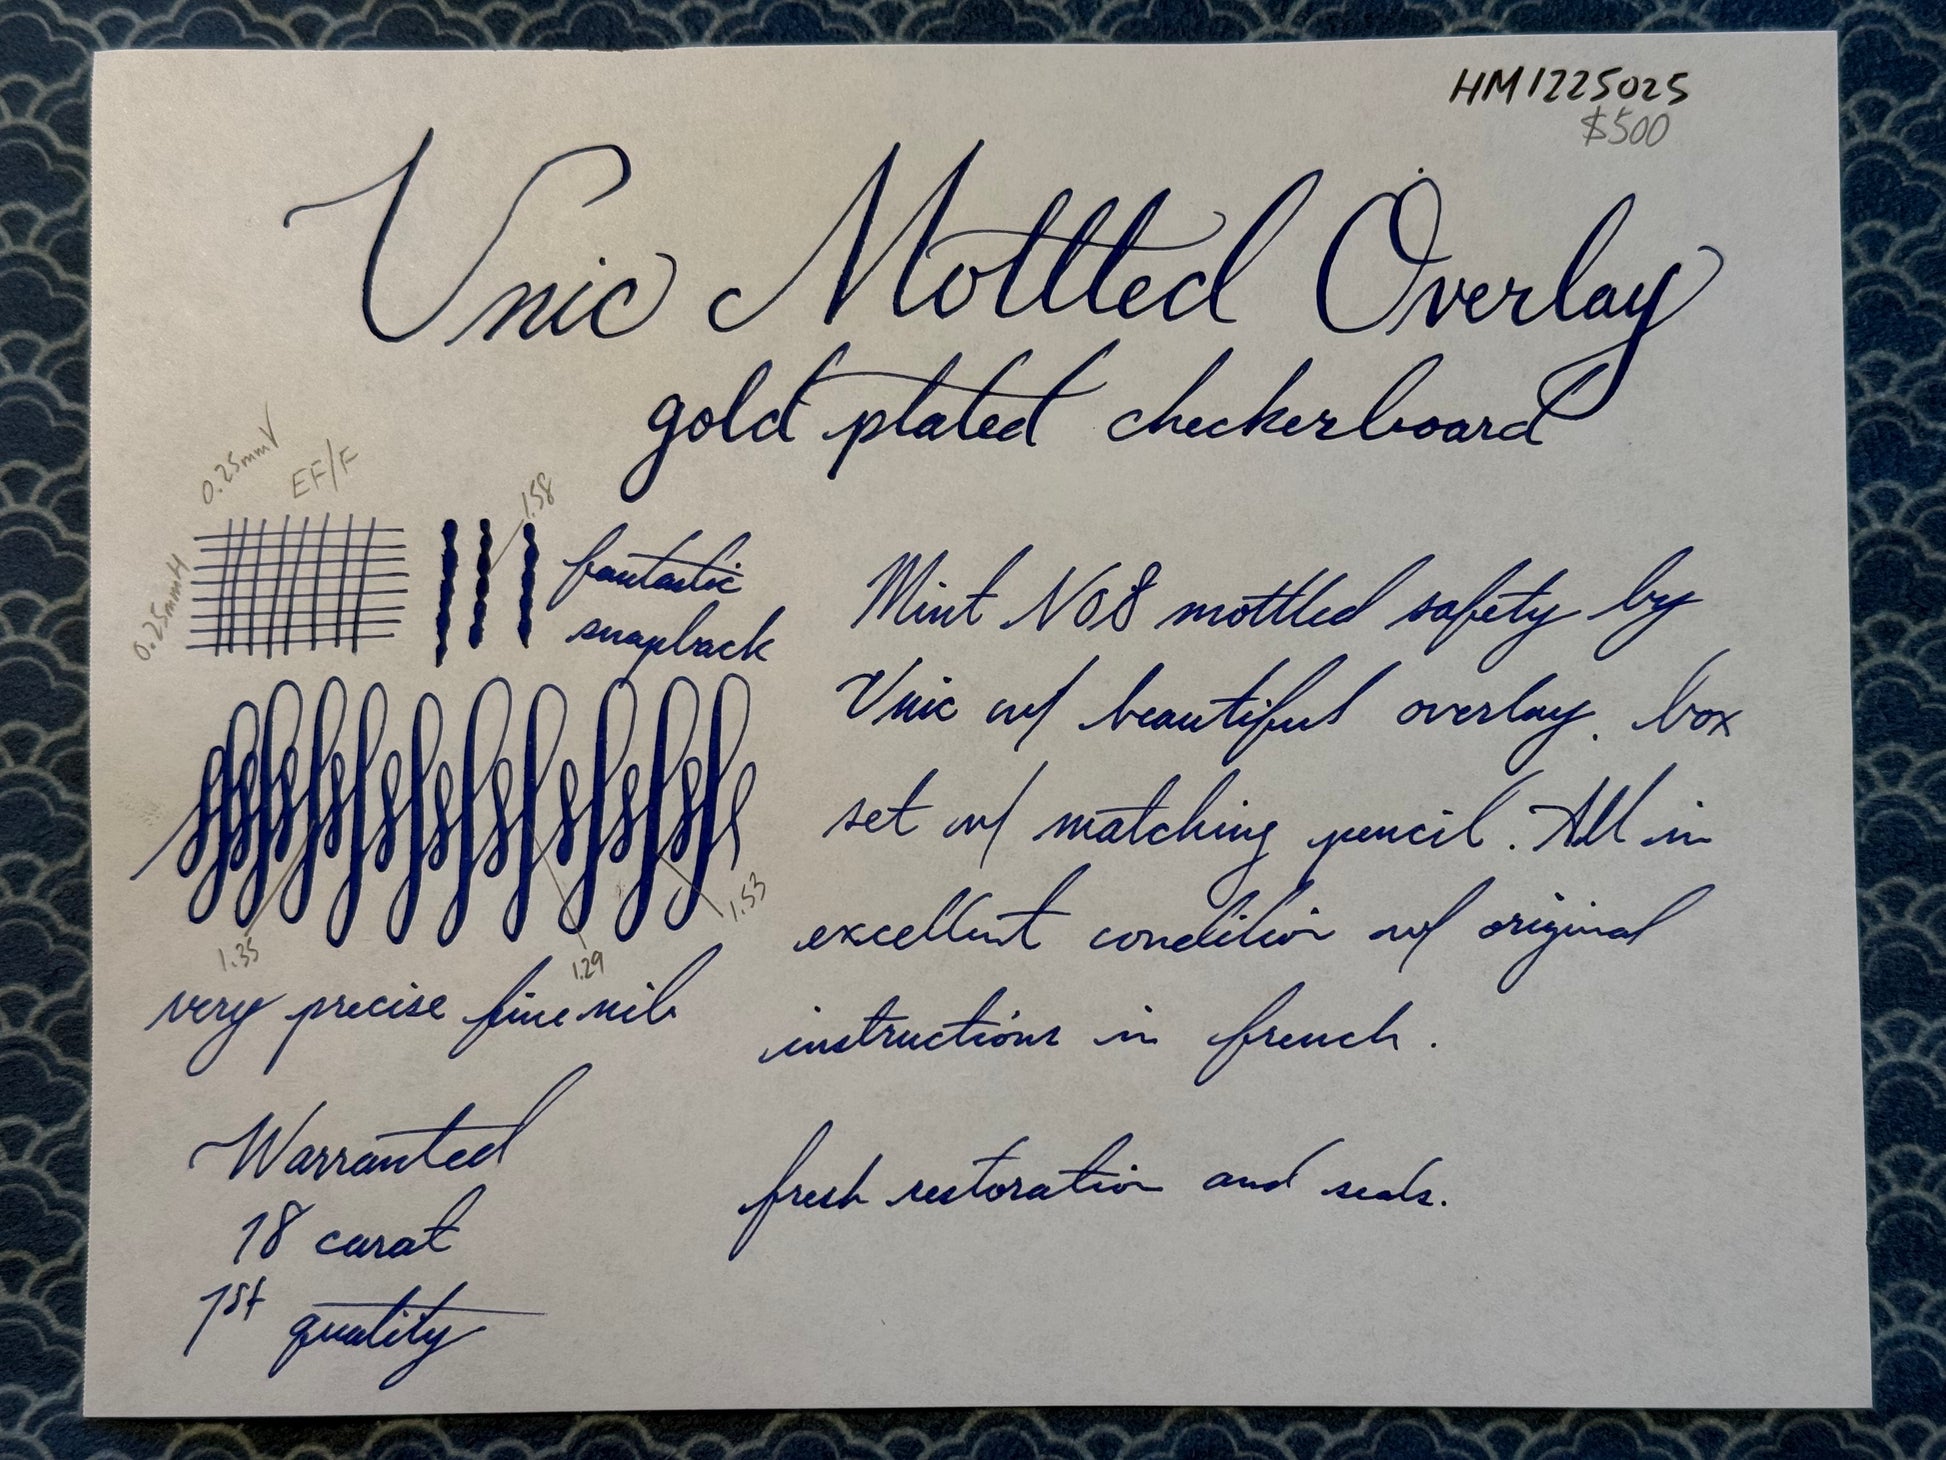 HM1225025
$500
Unic Mottled Overlay
gold plated checkerboard
0.25mmV
EF/F
0.25mmH
1.58
fantastic
snapback
1.35
1.29
1.53
very precise fine nib
Warranted
18 carat
1st quality
Mint No8 mottled safety by
Unic w/ beautiful overlay. box
set w/ matching pencil. All in
excellent condition w/ original
instructions in french.
fresh restoration and seals.